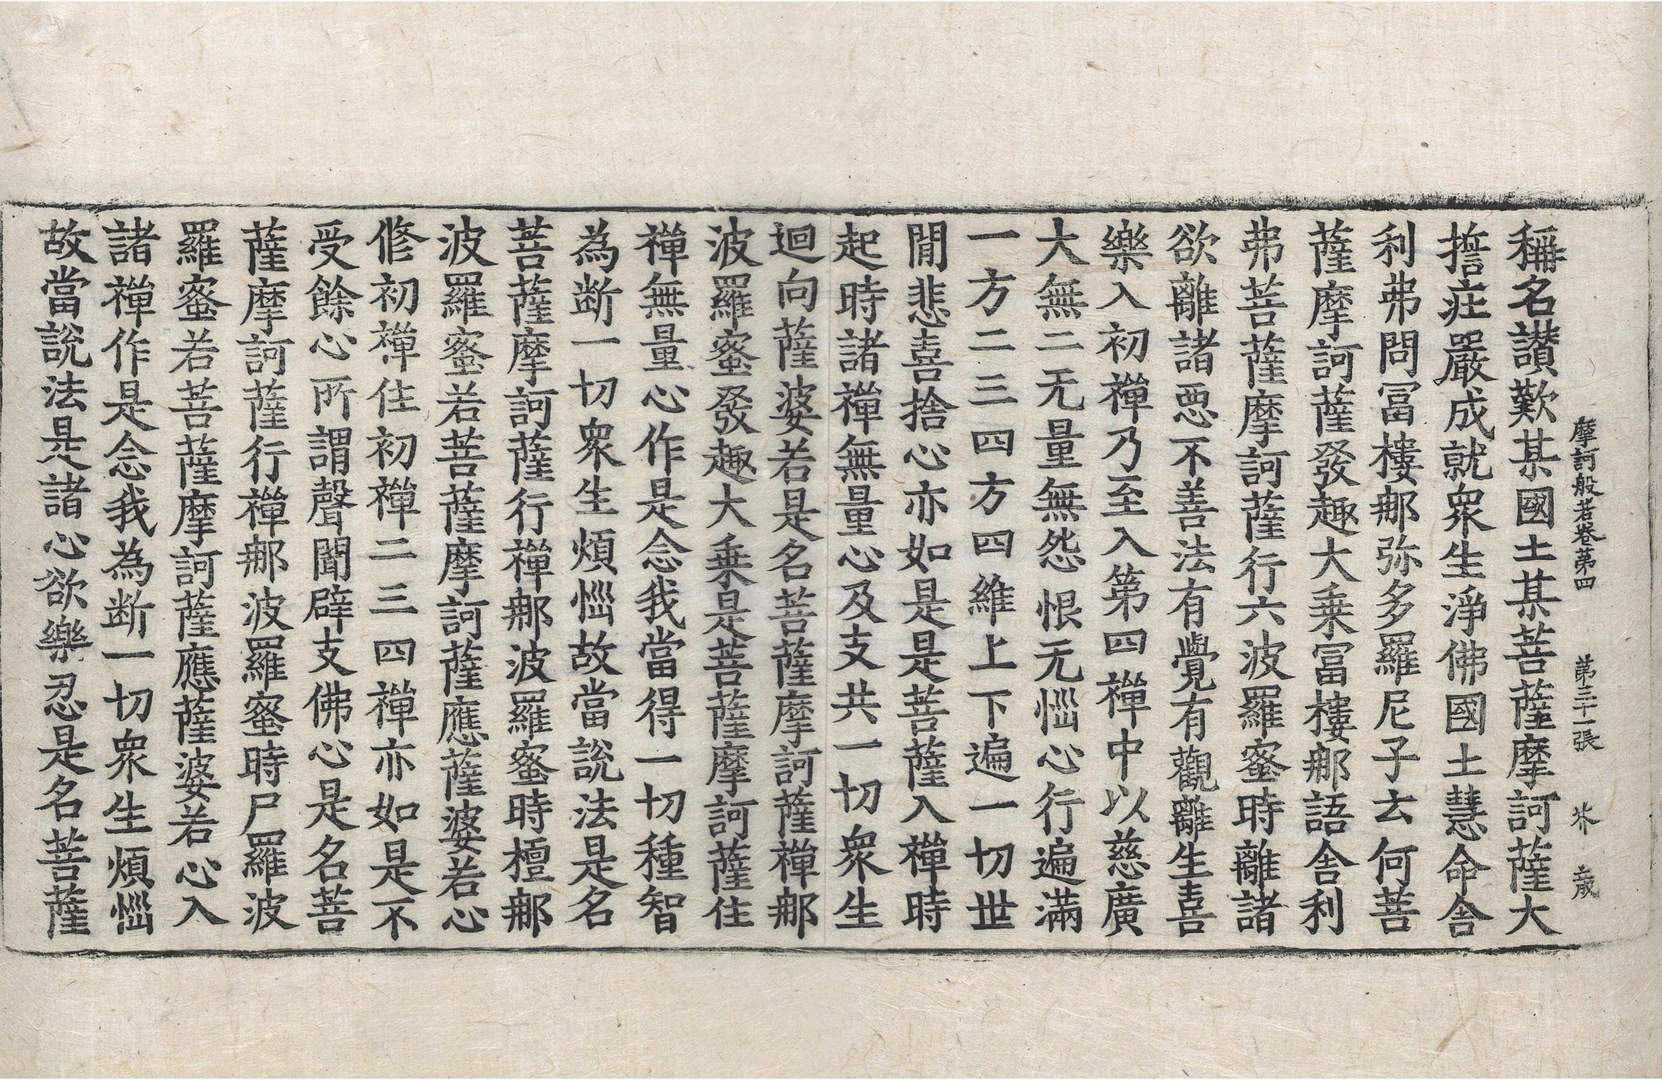 摩訶般若卷第四　第三十一張　米　歲
稱名讃歎某國土某菩薩摩訶薩大
誓莊嚴成就衆生淨佛國土慧命舍
利弗問冨樓那弥多羅尼子云何菩
薩摩訶薩發趣大乗冨樓那語舍利
弗菩薩摩訶薩行六波羅蜜時離諸
欲離諸惡不善法有覺有觀離生喜
樂入初禪乃至入第四禪中以慈廣
大無二无量無怨恨无惱心行遍滿
一方二三四方四維上下遍一切世
閒悲喜捨心亦如是是菩薩入禪時
起時諸禪無量心及支共一切衆生
迴向薩婆若是名菩薩摩訶薩禪那
波羅蜜發趣大乗是菩薩摩訶薩住
禪無量心作是念我當得一切種智
為断一切衆生煩惱故當說法是名
菩薩摩訶薩行禪那波羅蜜時檀那
波羅蜜若菩薩摩訶薩應薩婆若心
修初禪住初禪二三四禪亦如是不
受餘心所謂聲聞辟支佛心是名菩
薩摩訶薩行禪那波羅蜜時尸羅波
羅蜜若菩薩摩訶薩應薩婆若心入
諸禪作是念我為断一切衆生煩惱
故當說法是諸心欲樂忍是名菩薩